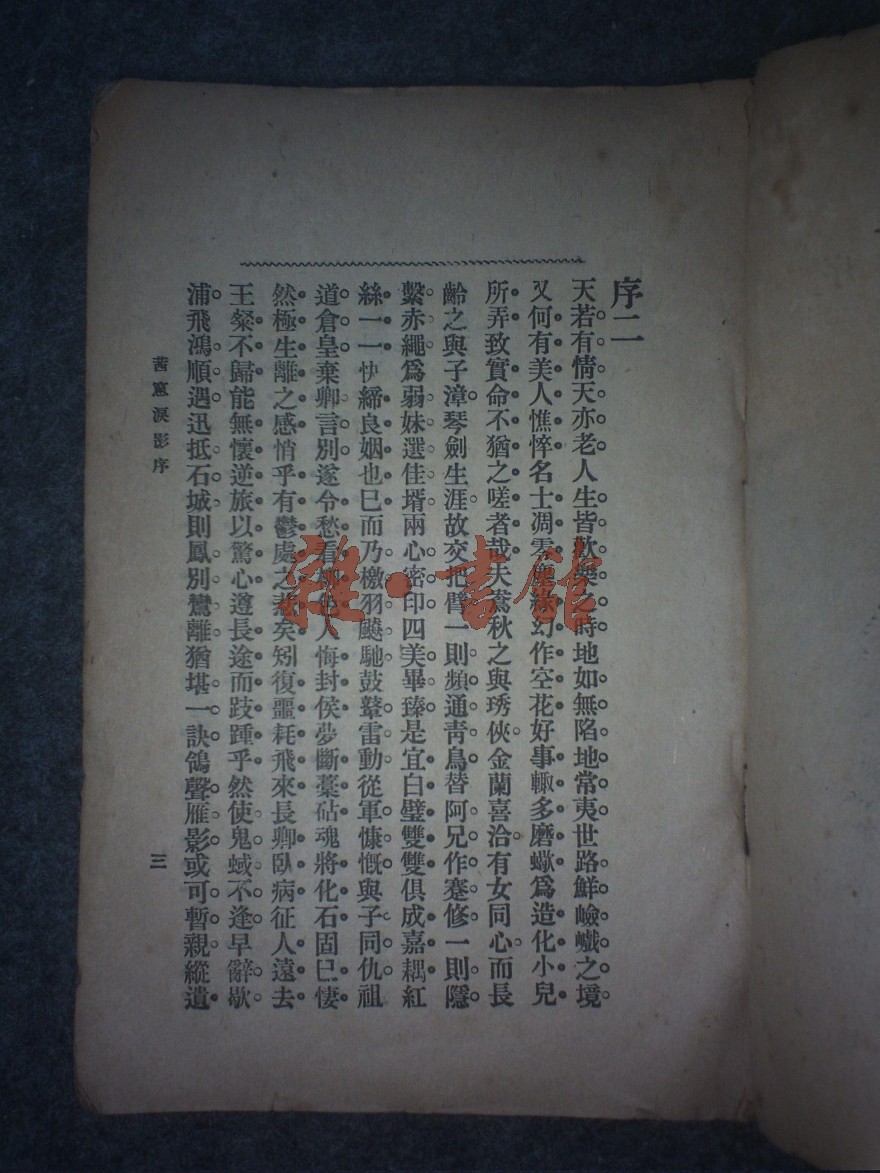 序二
天若有情天亦老人生皆歡樂之時地如無陷地常夷世路鮮嶮巇之境
又何有美人憔悴名士凋零塵緣幻作空花好事輙多磨蠍爲造化小兒
所弄致實命不猶之嗟者哉夫蒿秋之與琇俠金蘭喜洽有女同心而長
齡之與子漳琴劍生涯故交把臂一則頻通靑鳥替阿兄作蹇修一則隱
繫赤繩爲弱妹選佳壻兩心密印四美畢臻是宜白璧雙雙俱成嘉耦紅
絲一一快締良姻也巳而乃檄羽飈馳鼓鼙雷動從軍慷慨與子同仇祖
道倉皇棄卿言別遂令愁看柳色人悔封侯夢斷藁砧魂將化石固巳悽
然極生離之感悄乎有鬱處之愁矣矧復噩耗飛來長卿臥病征人遠去
王粲不歸能無懷逆旅以驚心遵長途而跂踵乎然使鬼蜮不逢早辭歇
浦飛鴻順遇迅抵石城則鳳別鸞離猶堪一訣鴿聲雁影或可暫親縱遺
茜窻淚影序
三
雜·書館